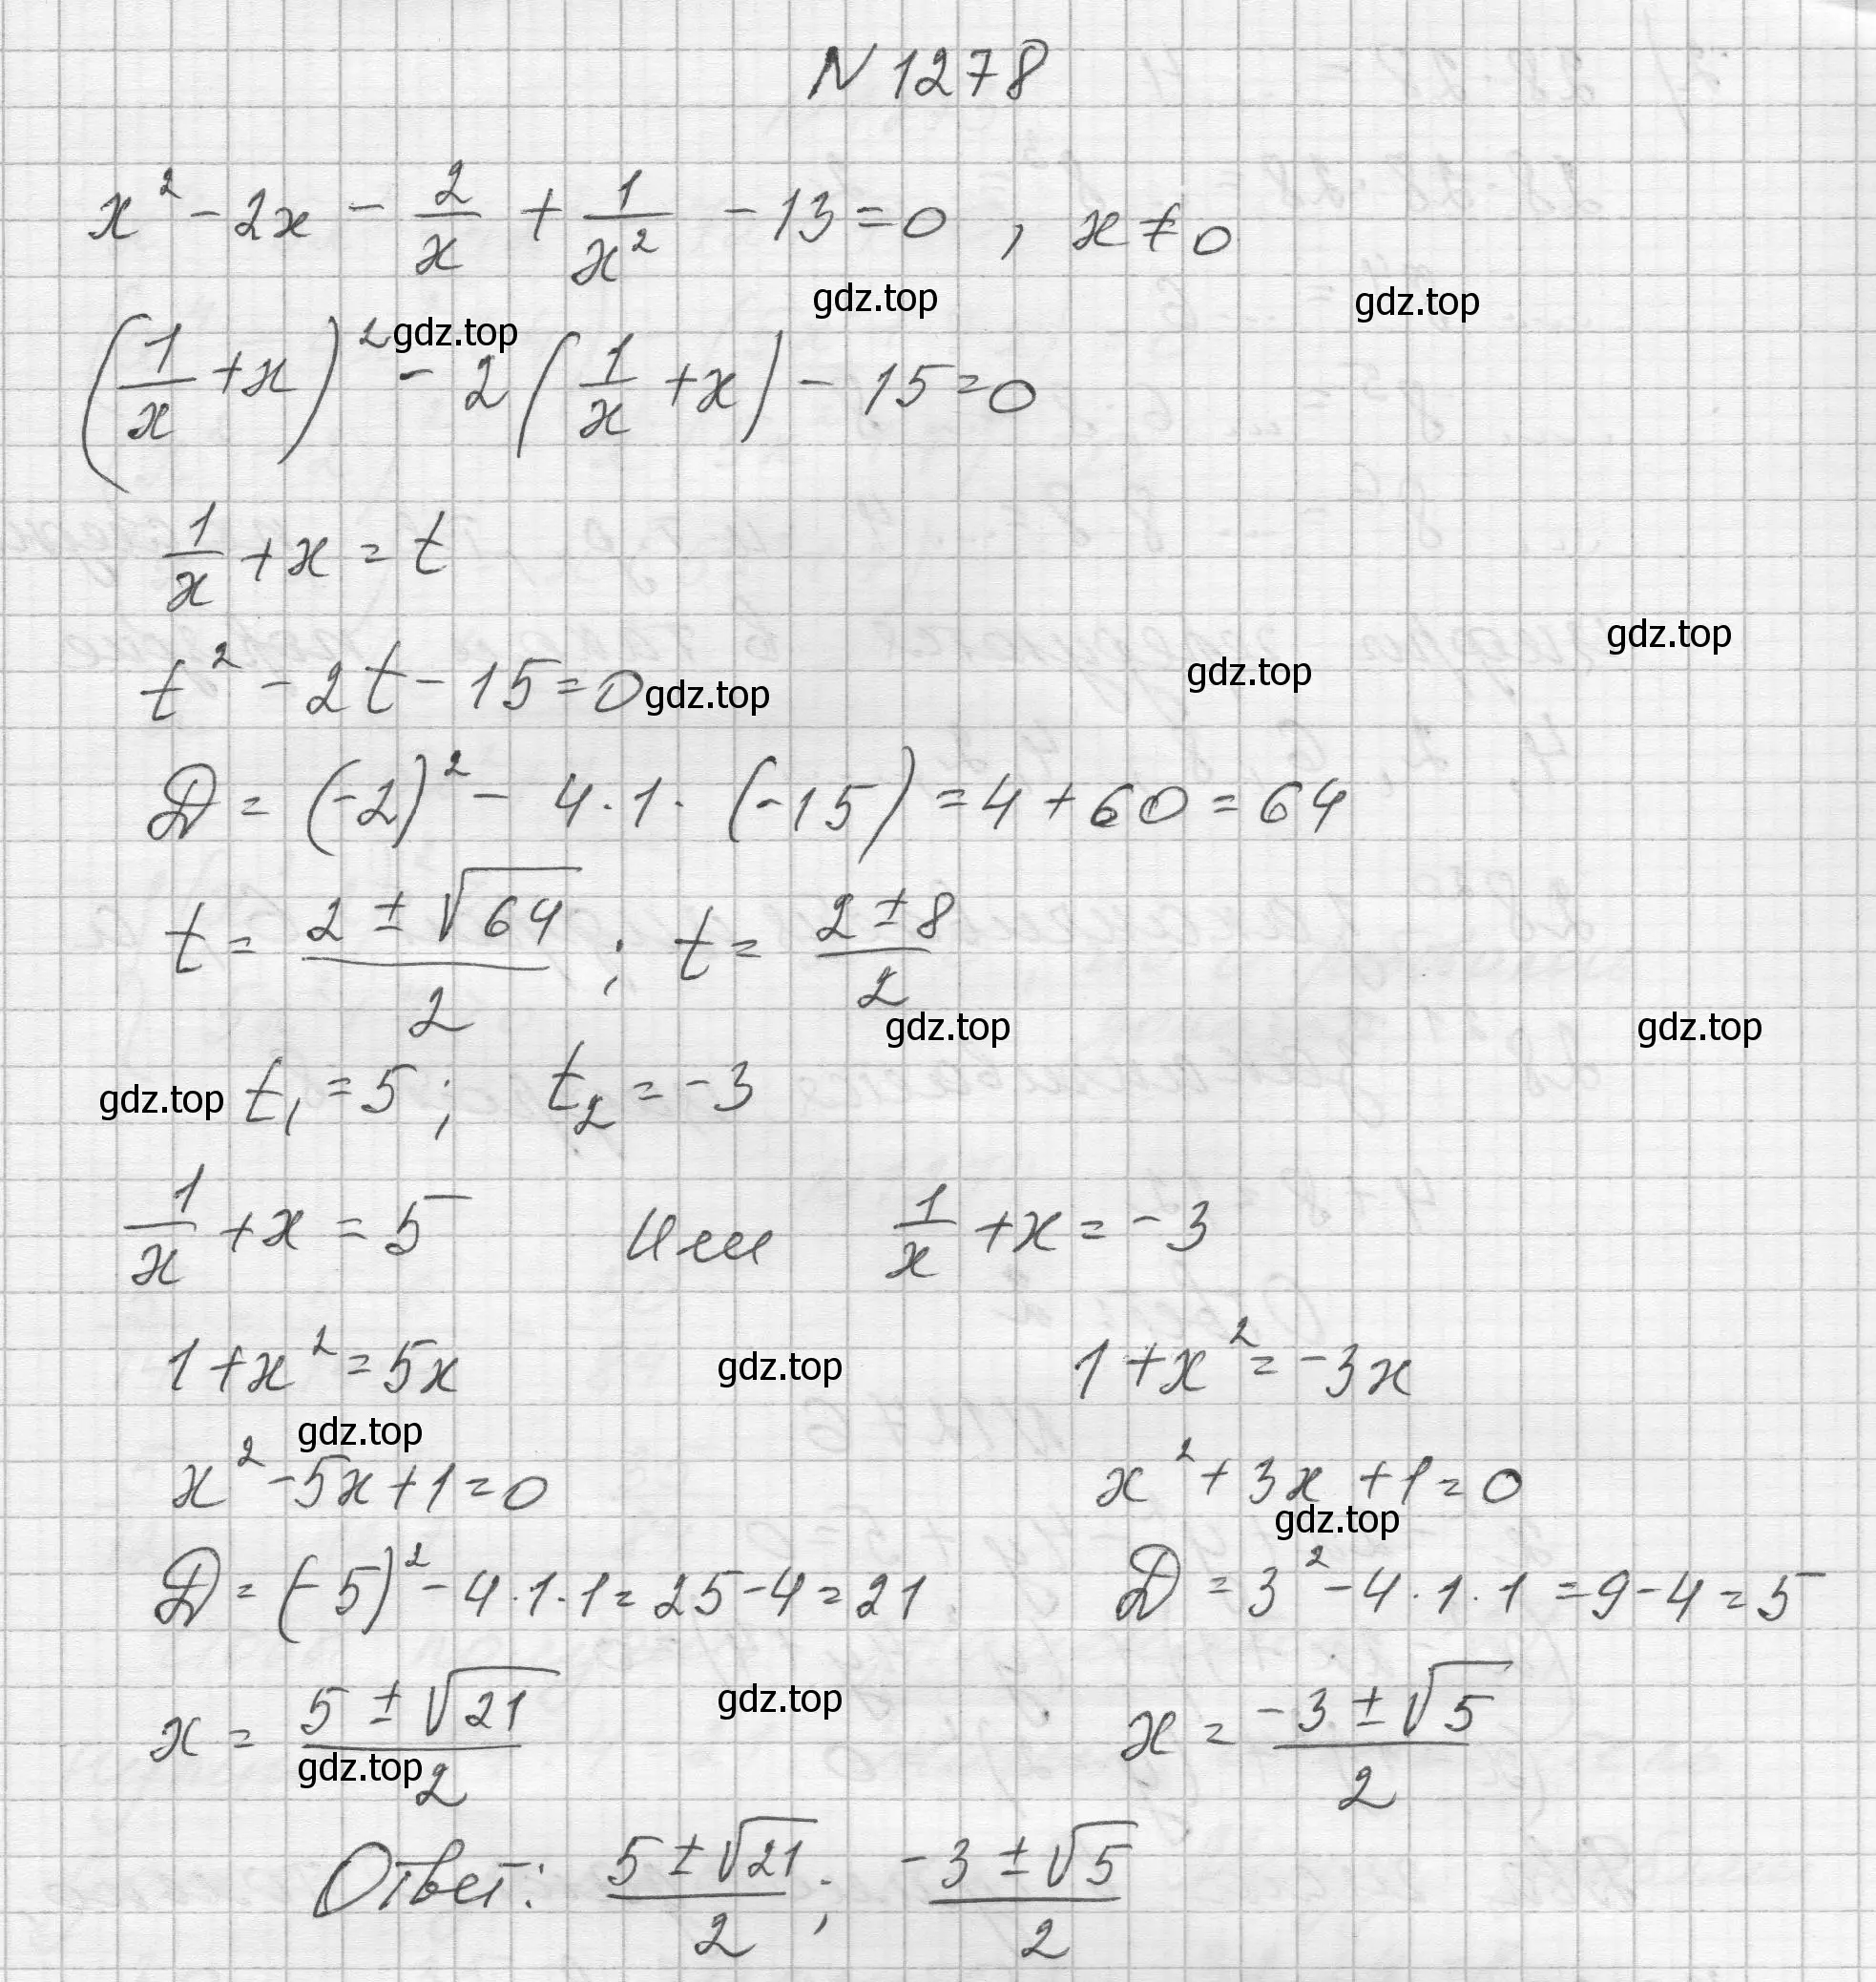 N 1278
x² - 2x - 2/x + 1/x² - 13 = 0 , x ≠ 0
gdz.top gdz.top
gdz.top
(1/x + x)² - 2(1/x + x) - 15 = 0
1/x + x = t
gdz.top
gdz.top
t² - 2t - 15 = 0 gdz.top
D = (-2)² - 4·1·(-15) = 4 + 60 = 64
t = (2 ± √64)/2 ; t = (2 ± 8)/2
gdz.top gdz.top
gdz.top t₁ = 5 ; t₂ = -3
1/x + x = 5 Или 1/x + x = -3
1 + x² = 5x gdz.top 1 + x² = -3x
gdz.top
x² - 5x + 1 = 0 x² + 3x + 1 = 0
gdz.top
D = (-5)² - 4·1·1 = 25 - 4 = 21 D = 3² - 4·1·1 = 9 - 4 = 5
x = (5 ± √21)/2 gdz.top x = (-3 ± √5)/2
gdz.top
Ответ: (5 ± √21)/2 ; (-3 ± √5)/2